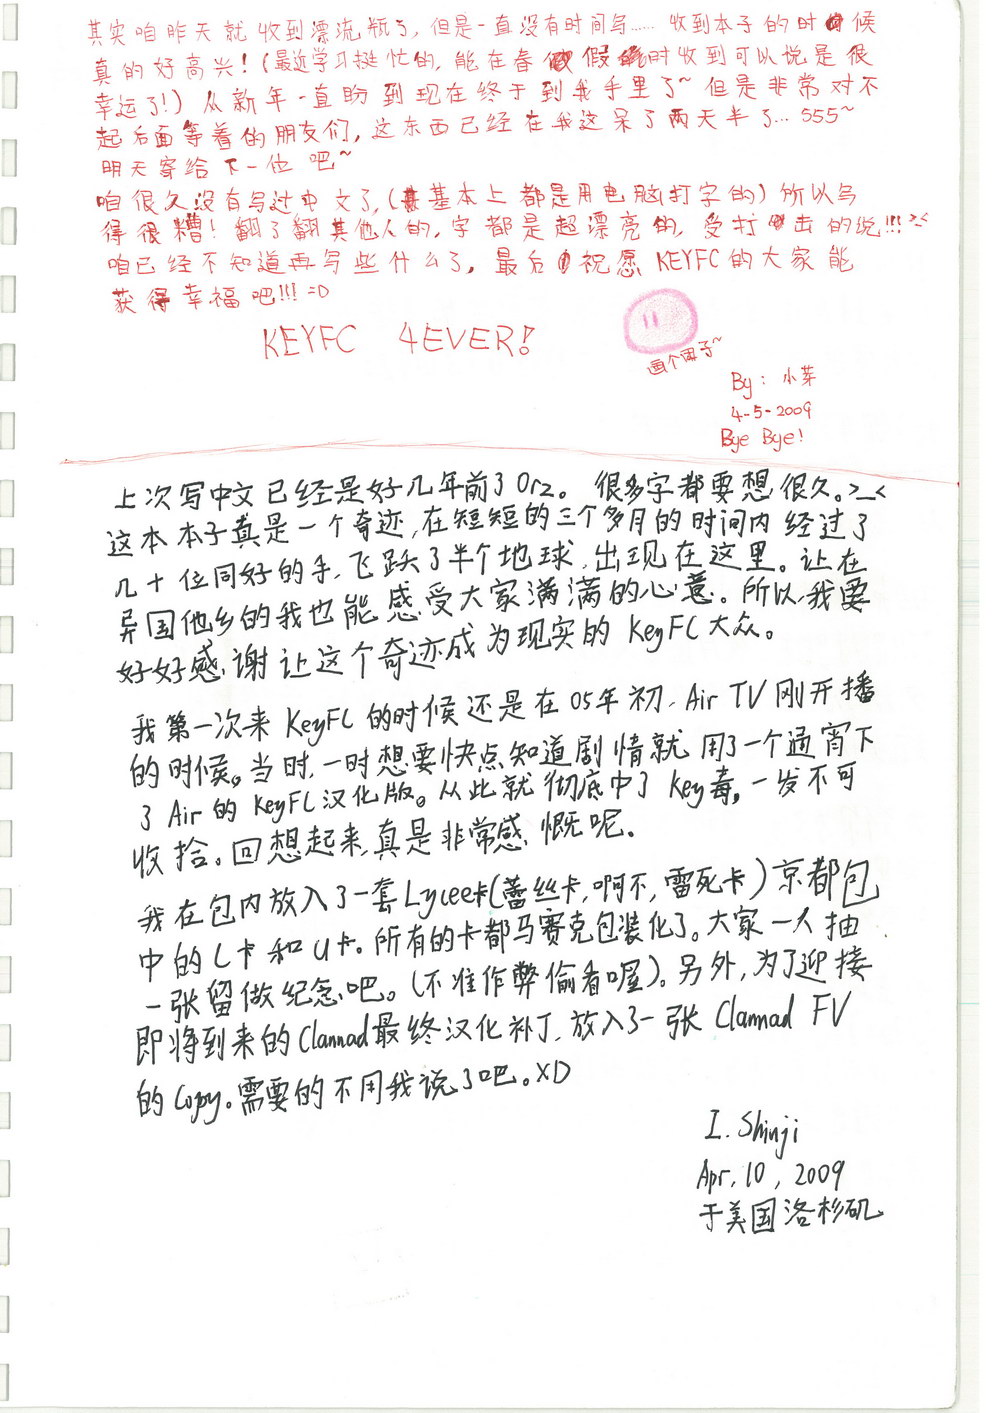 其实咱昨天就收到漂流瓶了，但是一直没有时间写……收到本子的时候
真的好高兴！（最近学习挺忙的，能在春假时收到可以说是很
幸运了！）从新年一直盼到现在终于到我手里了~但是非常对不
起后面等着的朋友们，这东西已经在我这呆了两天半了…555~
明天寄给下一位吧~
咱很久没有写过中文了，（基本上都是用电脑打字的）所以写
得很糟！翻了翻其他人的，字都是超漂亮的，受打击的说!!!><
咱已经不知道再写些什么了，最后祝愿KEYFC的大家能
获得幸福吧!!! =D
KEYFC 4EVER!
画个团子~
By: 小芽
4-5-2009
Bye Bye!
上次写中文已经是好几年前了Orz。很多字都要想很久。>_<
这本本子真是一个奇迹，在短短的三个多月的时间内经过了
几十位同好的手，飞跃了半个地球，出现在这里。让在
异国他乡的我也能感受大家满满的心意。所以，我要
好好感谢让这个奇迹成为现实的KeyFC大众。
我第一次来KeyFC的时候还是在05年初，Air TV刚开播
的时候。当时，一时想要快点知道剧情就用了一个通宵下
了Air的KeyFC汉化版。从此就彻底中了Key毒，一发不可
收拾。回想起来，真是非常感慨呢。
我在包内放入了一套Lycee卡（蕾丝卡，啊不，雷死卡）京都包
中的L卡和U卡。所有的卡都马赛克包装化了。大家一人抽
一张留做纪念吧。（不准作弊偷看喔）。另外，为了迎接
即将到来的Clannad最终汉化补丁，放入了一张Clannad FV
的Copy。需要的不用我说了吧。XD
I. Shinji
Apr, 10, 2009
于美国洛杉矶